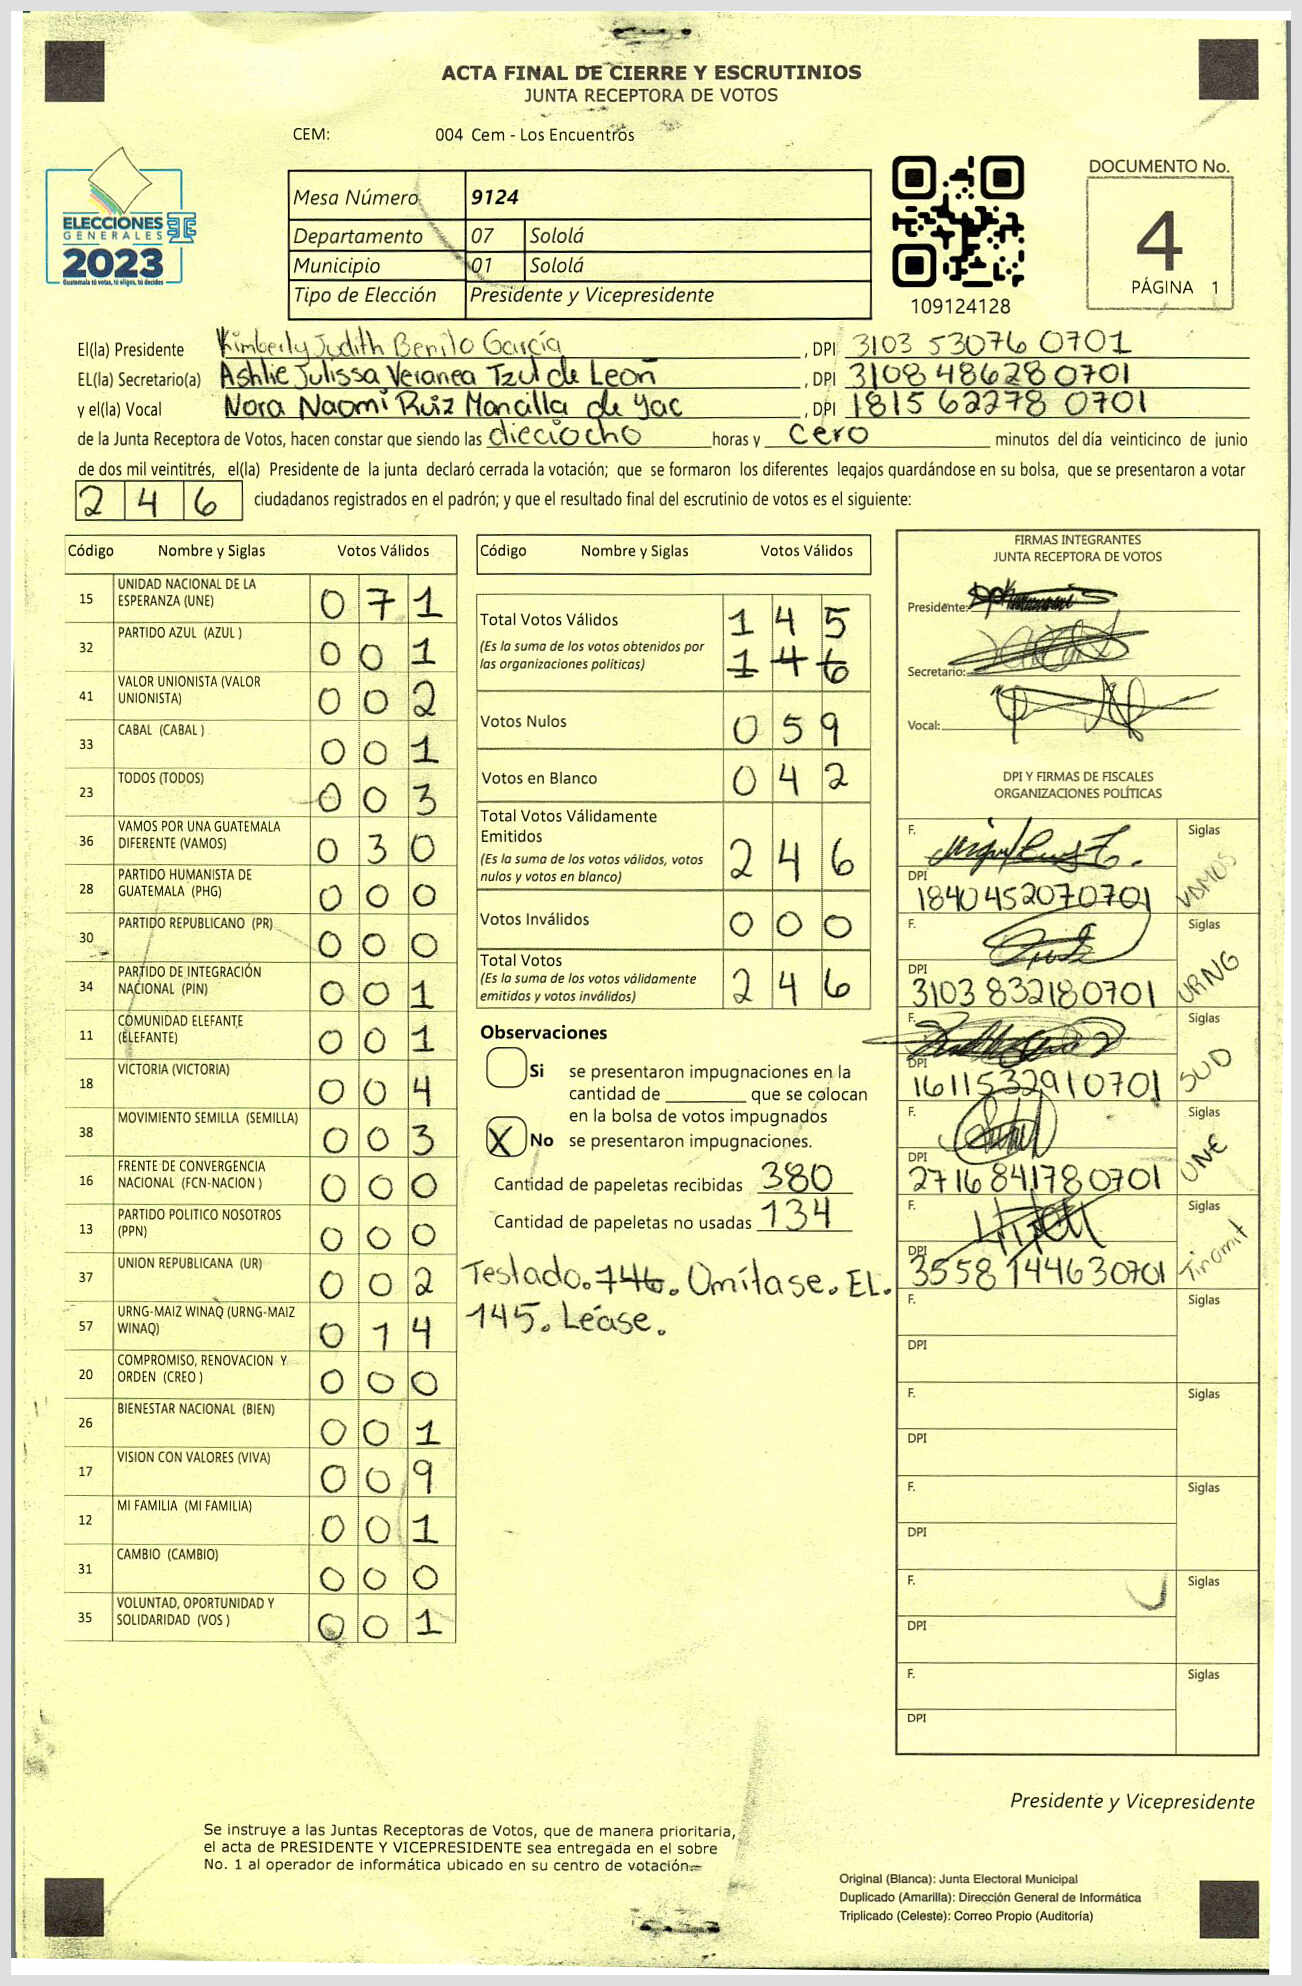 ACTA FINAL DE CIERRE Y ESCRUTINIOS
JUNTA RECEPTORA DE VOTOS
CEM: 004 Cem - Los Encuentros
ELECCIONES
GENERALES
2023
Guatemala tú votas, tú eliges, tú decides
Mesa Número 9124
Departamento 07 Sololá
Municipio 01 Sololá
Tipo de Elección Presidente y Vicepresidente
109124128
DOCUMENTO No.
4
PÁGINA 1
El(la) Presidente Kimberly Judith Benito García , DPI 3103 53076 0701
EL(la) Secretario(a) Ashlie Julissa Veranea Tzul de León , DPI 3108 48628 0701
y el(la) Vocal Nora Naomi Ruiz Mancilla de Yac , DPI 1815 62278 0701
de la Junta Receptora de Votos, hacen constar que siendo las dieciocho horas y cero minutos del día veinticinco de junio
de dos mil veintitrés, el(la) Presidente de la junta declaró cerrada la votación; que se formaron los diferentes legajos quardándose en su bolsa, que se presentaron a votar
246 ciudadanos registrados en el padrón; y que el resultado final del escrutinio de votos es el siguiente:
Código Nombre y Siglas Votos Válidos
15 UNIDAD NACIONAL DE LA ESPERANZA (UNE) 071
32 PARTIDO AZUL (AZUL ) 001
41 VALOR UNIONISTA (VALOR UNIONISTA) 002
33 CABAL (CABAL ) 001
23 TODOS (TODOS) 003
36 VAMOS POR UNA GUATEMALA DIFERENTE (VAMOS) 030
28 PARTIDO HUMANISTA DE GUATEMALA (PHG) 000
30 PARTIDO REPUBLICANO (PR) 000
34 PARTIDO DE INTEGRACIÓN NACIONAL (PIN) 001
11 COMUNIDAD ELEFANTE (ELEFANTE) 001
18 VICTORIA (VICTORIA) 004
38 MOVIMIENTO SEMILLA (SEMILLA) 003
16 FRENTE DE CONVERGENCIA NACIONAL (FCN-NACION ) 000
13 PARTIDO POLITICO NOSOTROS (PPN) 000
37 UNION REPUBLICANA (UR) 002
57 URNG-MAIZ WINAQ (URNG-MAIZ WINAQ) 014
20 COMPROMISO, RENOVACION Y ORDEN (CREO ) 000
26 BIENESTAR NACIONAL (BIEN) 001
17 VISION CON VALORES (VIVA) 009
12 MI FAMILIA (MI FAMILIA) 001
31 CAMBIO (CAMBIO) 000
35 VOLUNTAD, OPORTUNIDAD Y SOLIDARIDAD (VOS ) 001
Código Nombre y Siglas Votos Válidos
Total Votos Válidos 145
(Es la suma de los votos obtenidos por las organizaciones políticas) 146
Votos Nulos 059
Votos en Blanco 042
Total Votos Válidamente Emitidos 246
(Es la suma de los votos válidos, votos nulos y votos en blanco)
Votos Inválidos 000
Total Votos 246
(Es la suma de los votos válidamente emitidos y votos inválidos)
Observaciones
Si se presentaron impugnaciones en la
cantidad de ________ que se colocan
en la bolsa de votos impugnados
X No se presentaron impugnaciones.
Cantidad de papeletas recibidas 380
Cantidad de papeletas no usadas 134
Testado. 146. Omítase. EL.
145. Léase.
FIRMAS INTEGRANTES
JUNTA RECEPTORA DE VOTOS
Presidente:
Secretario:
Vocal:
DPI Y FIRMAS DE FISCALES
ORGANIZACIONES POLÍTICAS
F. Siglas VAMOS
DPI 1840452070701
F. Siglas URNG
DPI 3103 832180701
F. Siglas SUD
DPI 1611532910701
F. Siglas UNE
DPI 2716 841780701
F. Siglas Tinamit
DPI 3558 144630701
F. Siglas
DPI
F. Siglas
DPI
F. Siglas
DPI
F. Siglas
DPI
F. Siglas
DPI
Presidente y Vicepresidente
Se instruye a las Juntas Receptoras de Votos, que de manera prioritaria,
el acta de PRESIDENTE Y VICEPRESIDENTE sea entregada en el sobre
No. 1 al operador de informática ubicado en su centro de votación.
Original (Blanca): Junta Electoral Municipal
Duplicado (Amarilla): Dirección General de Informática
Triplicado (Celeste): Correo Propio (Auditoría)